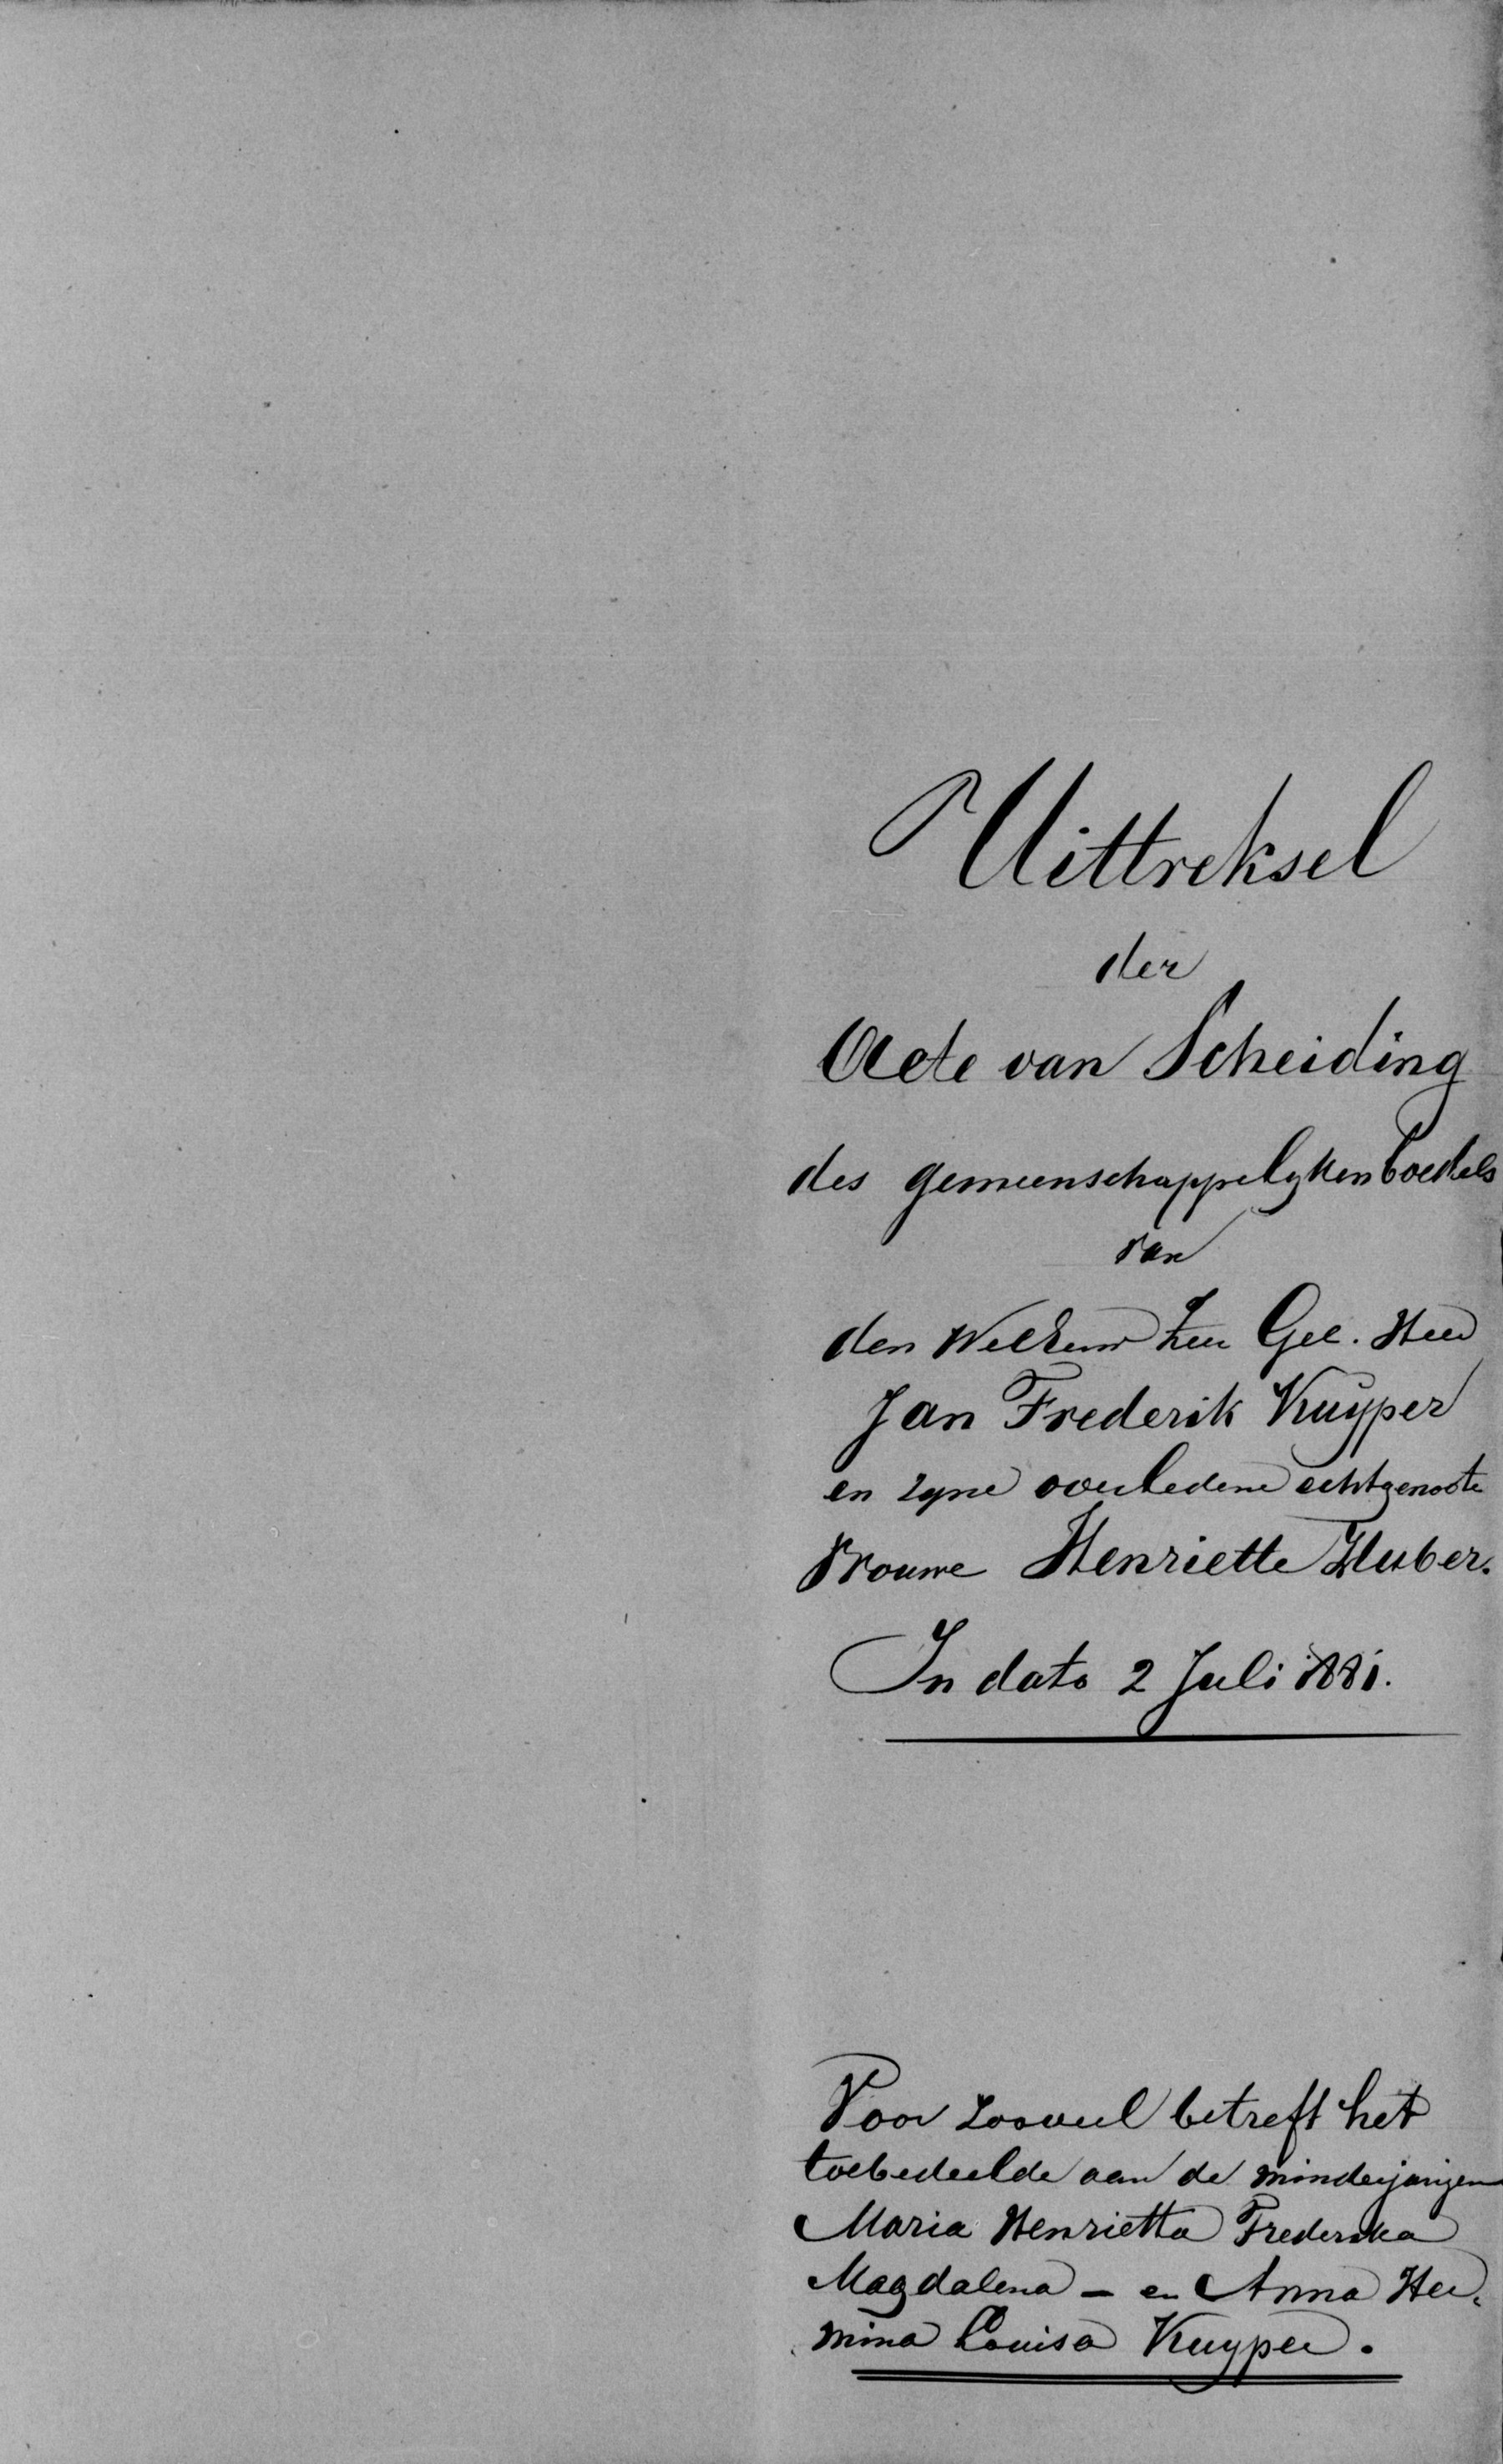 Uittreksel
der
Acte van Scheiding
des gemeenschappelyken boedels
van
den WelEerw Zeer Gel. Heer
Jan Frederik Kuyper
en zyne overledene echtgenoote
Vrouwe Henriette Huber.
In dato 2 Juli 1881.
Voor zooveel betreft het
toebedeelde aan de minderjarigen
Maria Henrietta Frederika
Magdalena – en Anna Her-
mina Louisa Kuyper.